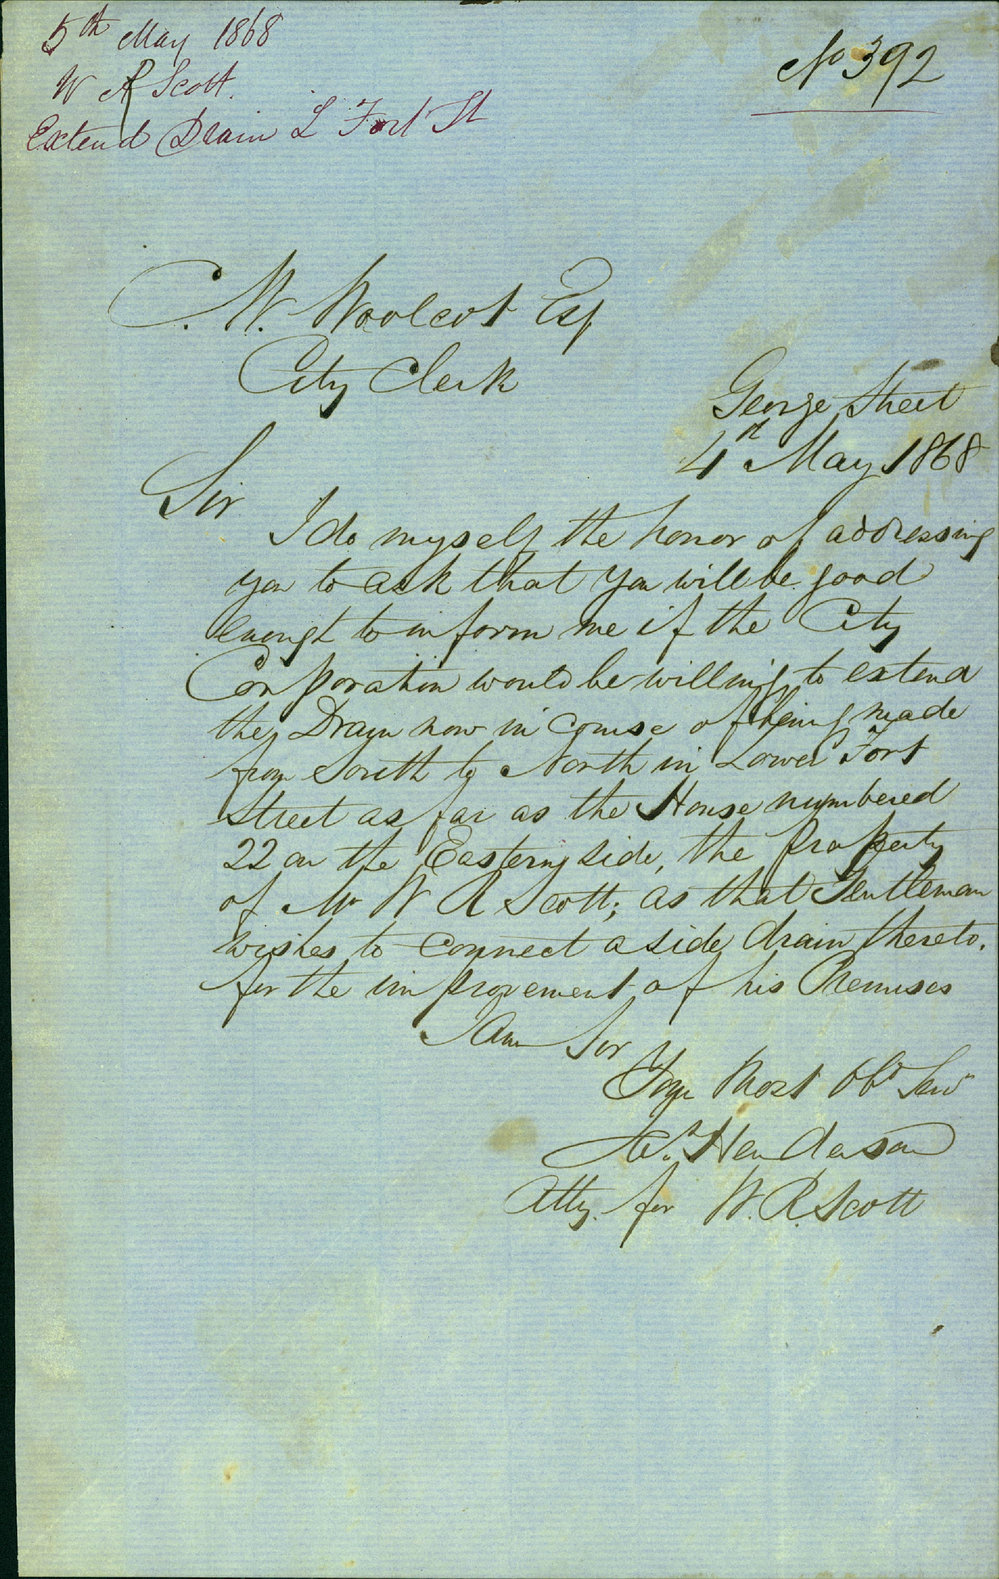 5th May 1868
W R Scott.
Extend Drain L Fort St
No 392
C. W. Woolcot Esq
City Clerk
George Street
4th May 1868
Sir
I do myself the honor of addressing
you to ask that you will be good
enough to inform me if the City
Corporation would be willing to extend
the Drain now in course of being made
from South to North in Lower Fort
Street as far as the House numbered
22 on the Eastern side, the property
of Mr W R Scott; as that Gentleman
wishes to connect a side drain thereto.
for the improvement of his Premises
I am Sir
Your Most Obt Serv
Henderson
Atty. for W. R. Scott